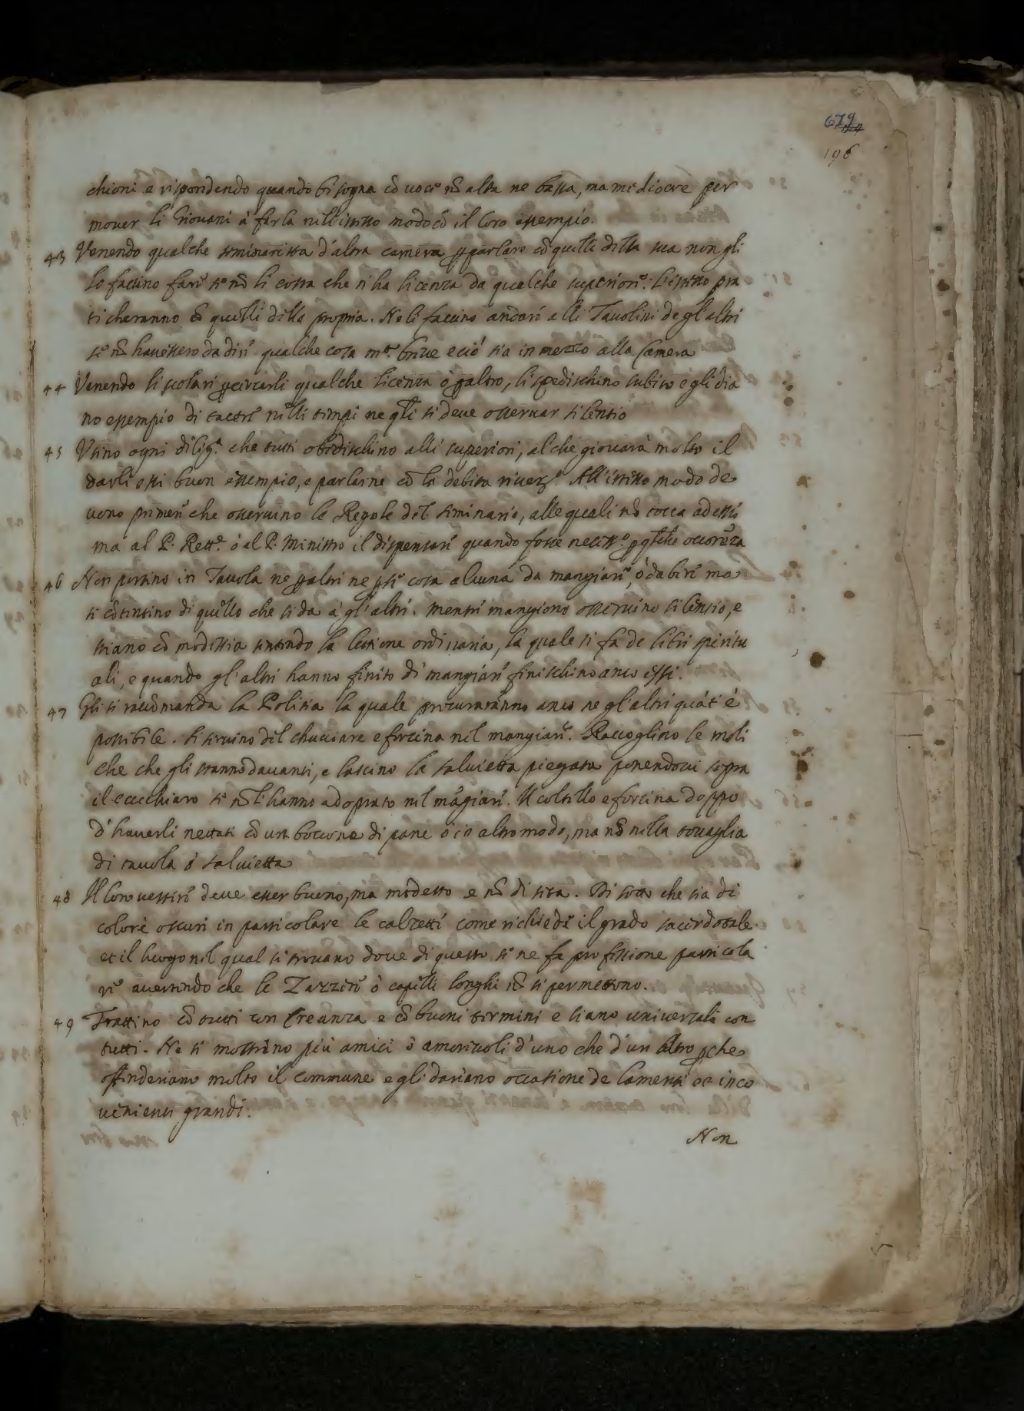 679
196
chioni e rispondendo quando bisogna cō voce nō alta ne bassa, ma mediocre per
mover li Giovani à farla nell'istesso modo cō il loro essempio.
43 Venendo qualche seminarista d'altra camera p parlare cō quelli della sua non gli
lo faccino fare se nō li costa che n'ha licenza da qualche superiore. L'istesso pra
ticharanno cō quelli della propria. Ne li faccino andare alli Tavolini degl'altri
se nō havessero da dire qualche cosa mto breve e ciò sia in mezzo alla Camera
44 Venendo li scolari p cercarli qualche licenza ò p altro, li spedischino subito e gli dia
no essempio di tacere nelli tempi ne qli si deve osservar silentio
45 Usino ogni diligza che tutti obedischino alli superiori, al che giovarà molto il
darli essi buon essempio, e parlarne cō la debita riverza. All'istesso modo de
vono primere che osservino le Regole del seminario, alle quali nō tocca ad essi
ma al P. Rettre ò al P. Ministro il dispensare quando fosse necessro p qlche occorēza
46 Non portino in Tavola ne p altri ne p se cosa alcuna da mangiare, ò da bere ma
si cōtentino di quello che si da à gl'altri. Mentre mangiono osservino silentio, e
stiano cō modestia sentendo la lettione ordinaria, la quale si fa de libri spiritu
ali, e quando gl'altri hanno finito di mangiare finischino anco essi.
47 Gli si racōmanda la Politia la quale procuraranno anco ne gl'altri quāt' è
possibile. Si servino del chuciare e forcina nel mangiare. Raccoglino le moli
che che gli stanno davanti, e lascino la salvietta piegata ponendovi sopra
il cucchiaro se nō l'hanno adoprato nel māgiare. Il coltello e forcina doppo
d'haverli nettati cō un boccone di pane ò ī altro modo, ma nō nella tovaglia
di tavola ò salvietta
48 Il loro vestire deve esser bueno, ma modesto e nō di seta. Di sotto che sia di
colore oscuri in particolare le calzette come richiede il grado sacerdotale
et il luogo nel qual si trovano dove di questo se ne fa professione particola
re avertendo che le Zazzere ò capelli longhi nō si permettono.
49 Trattino cō tutti con Creanza e cō buoni termini e siano universali con
tutti. Ne si mostrino più amici ò amorevoli d'uno che d'un altro pche
offenderiano molto il commune e gli dariano occasione de lamenti et inco
venienti grandi.
Non